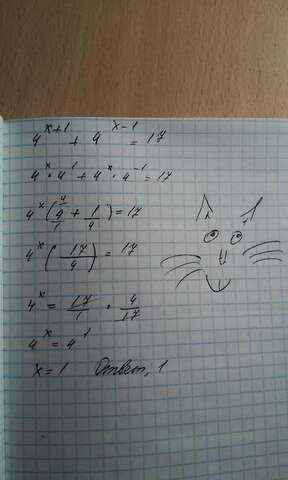 4^(x+1) + 4^(x-1) = 17
4^x · 4^1 + 4^x · 4^(-1) = 17
4^x (4/1 + 1/4) = 17
4^x (17/4) = 17
4^x = 17/1 · 4/17
4^x = 4^1
x = 1 Ответ, 1